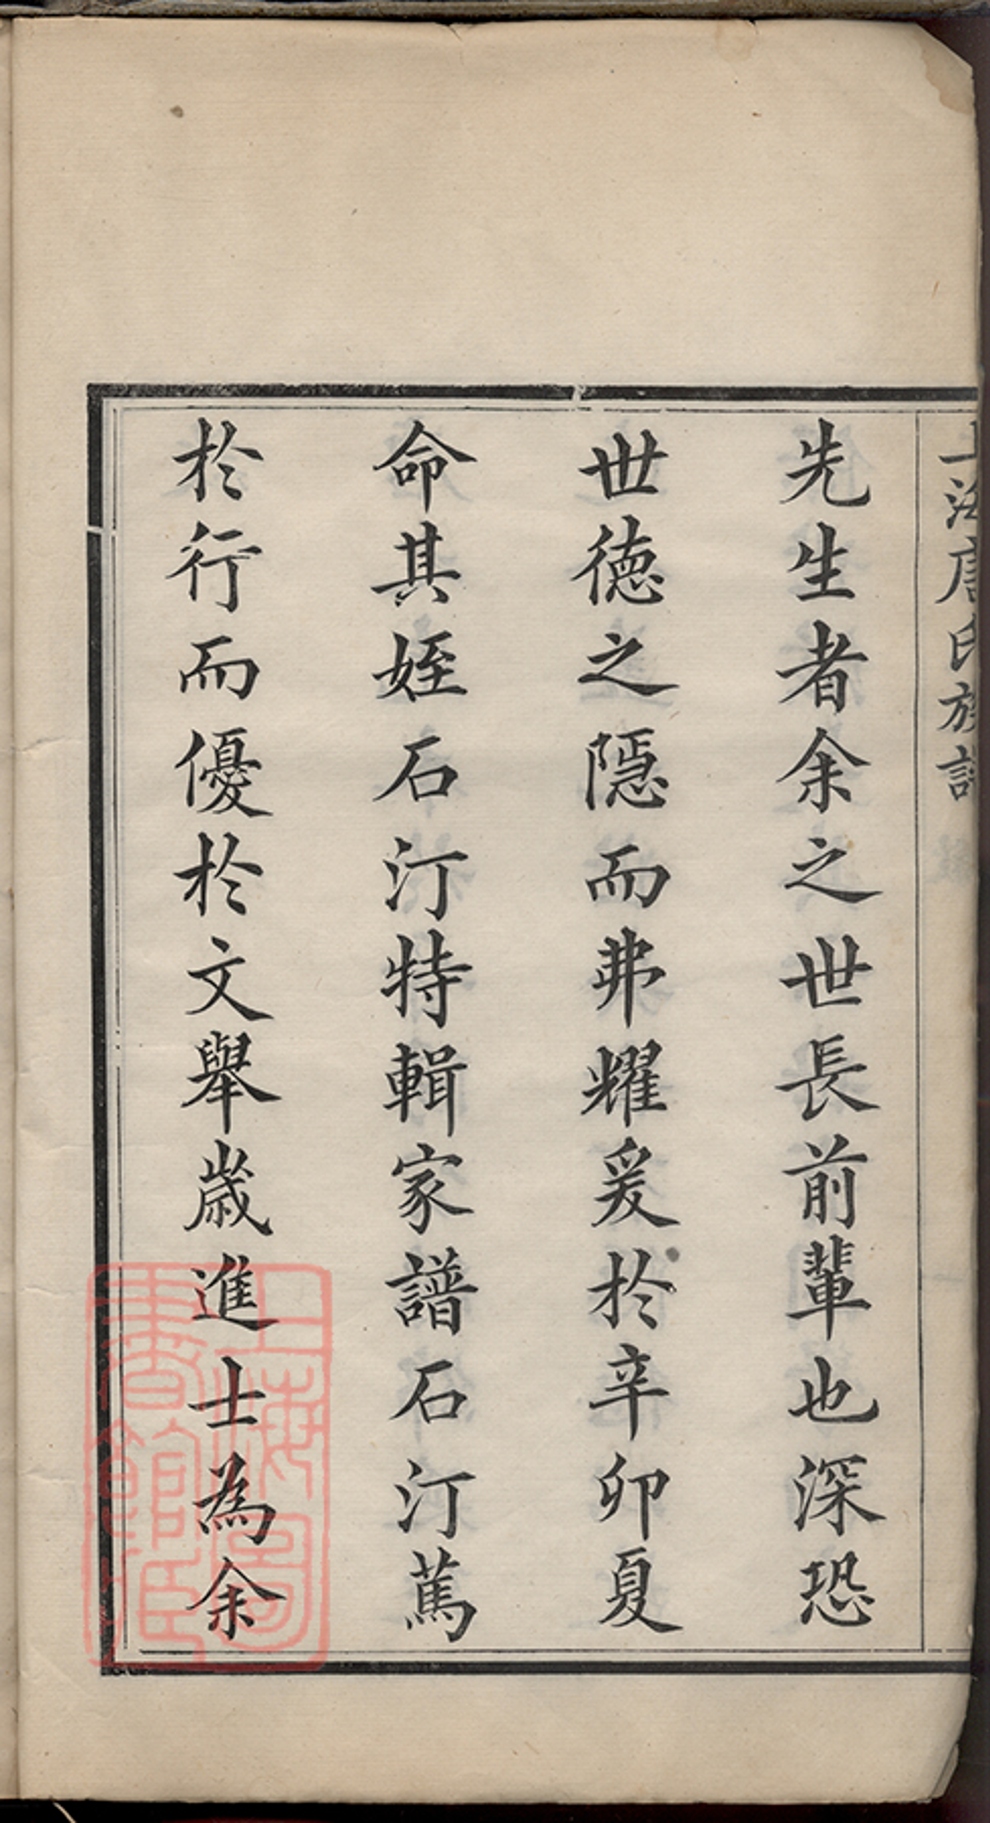 上海唐氏族譜
先生者余之世長前輩也深恐
世德之隱而弗耀爰於辛卯夏
命其姪石汀特輯家譜石汀篤
於行而優於文舉歲進士為余
上海圖
書館藏